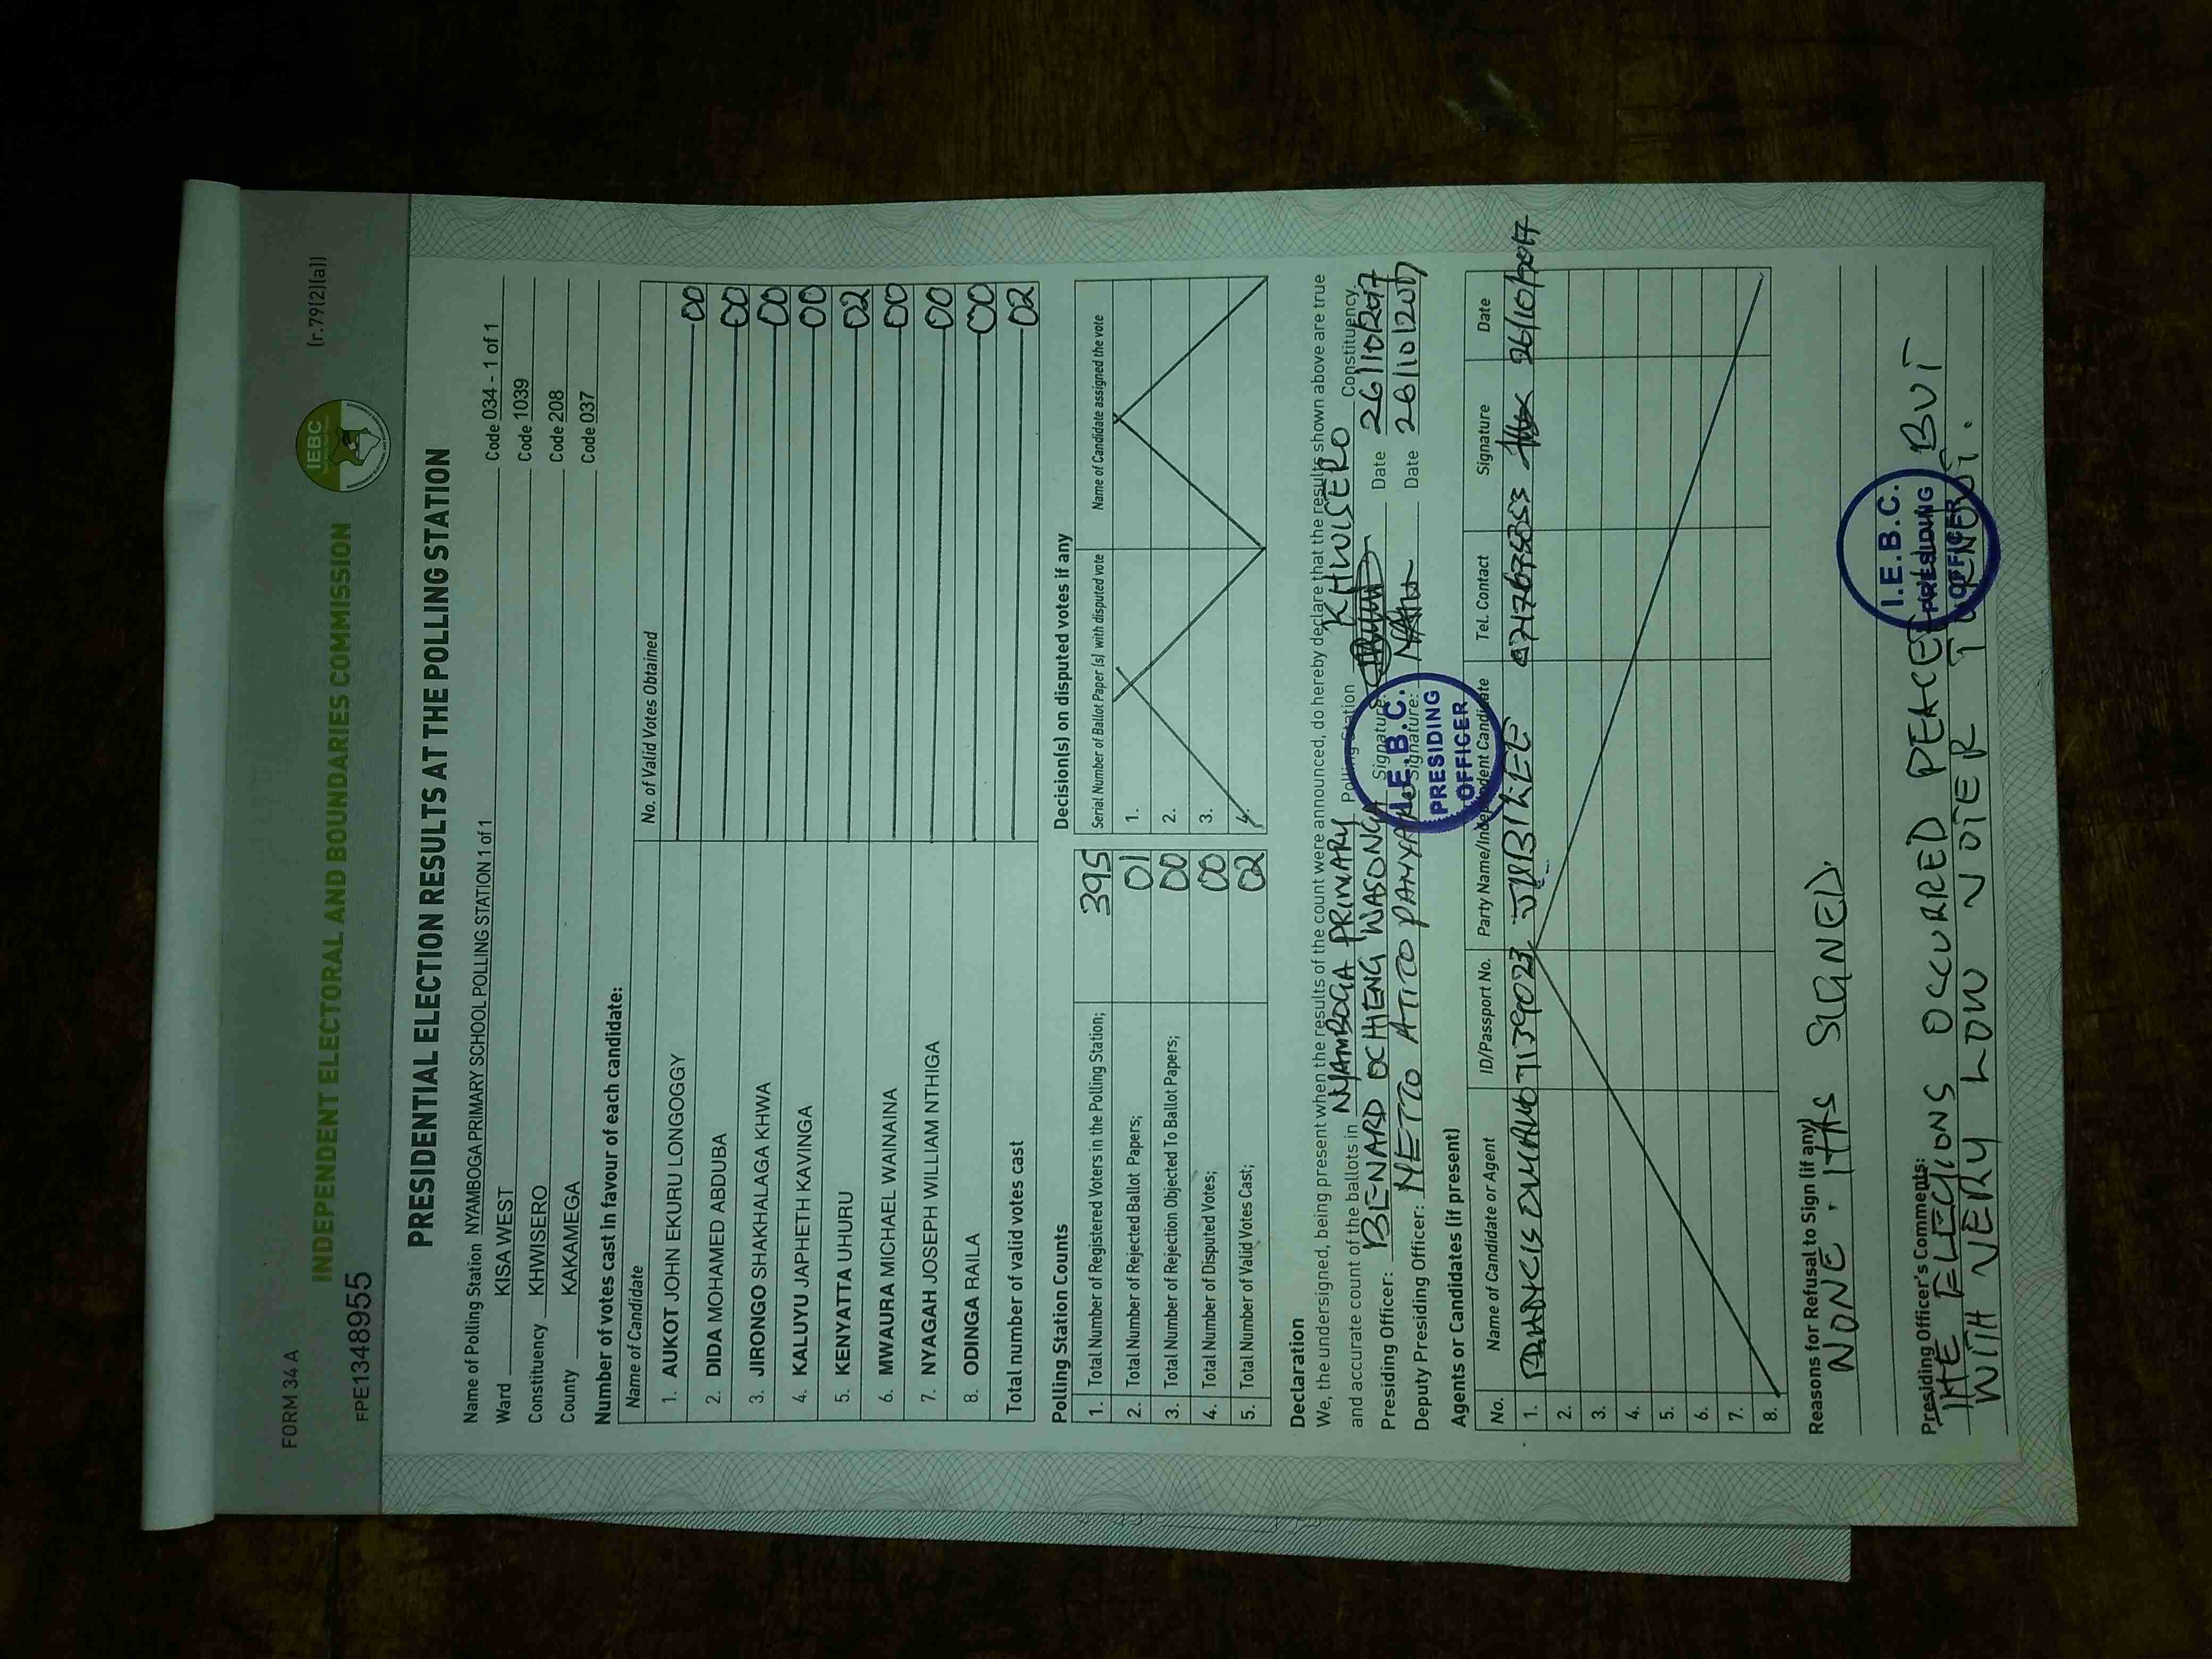 FORM 34 A
(r.79(2)(a))
IEBC
INDEPENDENT ELECTORAL AND BOUNDARIES COMMISSION
FPE1348955
PRESIDENTIAL ELECTION RESULTS AT THE POLLING STATION
Name of Polling Station NYAMBOGA PRIMARY SCHOOL POLLING STATION 1 of 1 Code 034 - 1 of 1
Ward KISA WEST Code 1039
Constituency KHWISERO Code 208
County KAKAMEGA Code 037
Number of votes cast in favour of each candidate:
Name of Candidate No. of Valid Votes Obtained
1. AUKOT JOHN EKURU LONGOGGY 00
2. DIDA MOHAMED ABDUBA 00
3. JIRONGO SHAKHALAGA KHWA 00
4. KALUYU JAPHETH KAVINGA 00
5. KENYATTA UHURU 02
6. MWAURA MICHAEL WAINAINA 00
7. NYAGAH JOSEPH WILLIAM NTHIGA 00
8. ODINGA RAILA 00
Total number of valid votes cast 02
Polling Station Counts
1. Total Number of Registered Voters in the Polling Station; 395
2. Total Number of Rejected Ballot Papers; 01
3. Total Number of Rejection Objected To Ballot Papers; 00
4. Total Number of Disputed Votes; 00
5. Total Number of Valid Votes Cast; 02
Decision(s) on disputed votes if any
Serial Number of Ballot Paper (s) with disputed vote Name of Candidate assigned the vote
1.
2.
3.
4.
Declaration
We, the undersigned, being present when the results of the count were announced, do hereby declare that the results shown above are true
and accurate count of the ballots in NYAMBOGA PRIMARY Polling Station KHWISERO Constituency.
Presiding Officer: BENARD OCHIENG WASONGA Signature: Date 26/10/2017
Deputy Presiding Officer: NETTO ATITO Signature: Date 26/10/2017
I.E.B.C.
PRESIDING
OFFICER
Agents or Candidates (if present)
No. Name of Candidate or Agent ID/Passport No. Party Name/Independent Candidate Tel. Contact Signature Date
1. JUBILEE 26/10/2017
2.
3.
4.
5.
6.
7.
8.
Reasons for Refusal to Sign (if any)
NONE. HAS SIGNED.
Presiding Officer's Comments:
THE ELECIONS OCCURED BUT
WITH VERY LOW VOTER
I.E.B.C.
PRESIDING
OFFICER